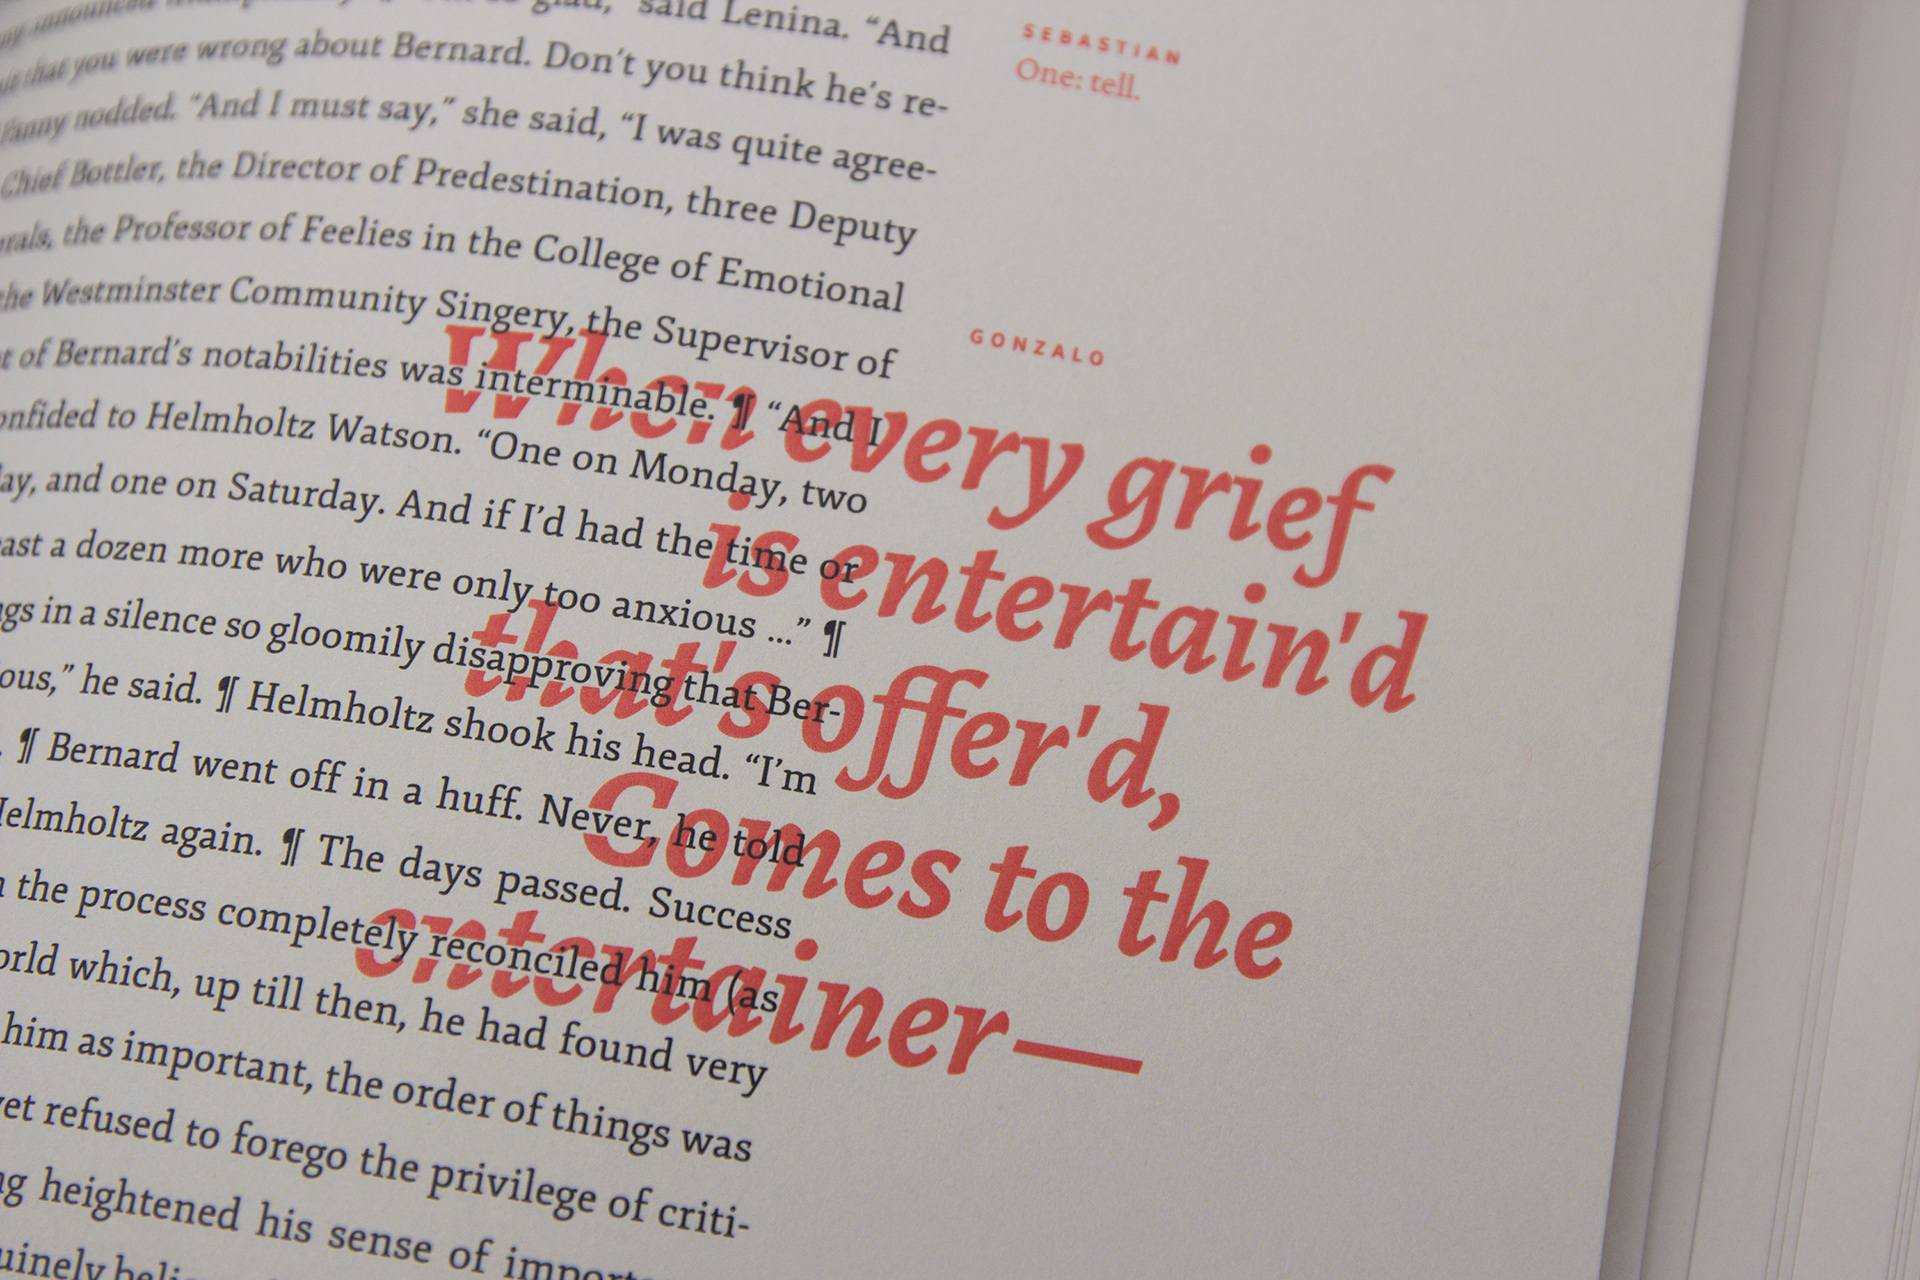 glad," said Lenina. "And
that you were wrong about Bernard. Don't you think he's re-
Fanny nodded. "And I must say," she said, "I was quite agree-
Chief Bottler, the Director of Predestination, three Deputy
the Professor of Feelies in the College of Emotional
the Westminster Community Singery, the Supervisor of
of Bernard's notabilities was interminable. ¶ "And I
confided to Helmholtz Watson. "One on Monday, two
and one on Saturday. And if I'd had the time or
a dozen more who were only too anxious ..." ¶
in a silence so gloomily disapproving that Ber-
he said. ¶ Helmholtz shook his head. "I'm
¶ Bernard went off in a huff. Never, he told
Helmholtz again. ¶ The days passed. Success
the process completely reconciled him (as
which, up till then, he had found very
him as important, the order of things was
yet refused to forego the privilege of criti-
heightened his sense of
SEBASTIAN
One: tell.
GONZALO
When every grief
is entertain'd
that's offer'd,
Comes to the
entertainer—